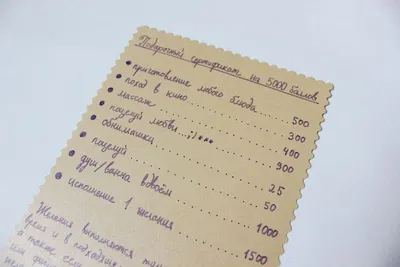 Подарочный сертификат на 5000 баллов
• приготовление любого блюда ... 500
• поход в кино ... 300
• массаж ... 400
• поцелуй любви...;)*** ... 900
• обнимашки ... 25
• поцелуй ... 50
• душ/ванна вдвоём ... 1000
• исполнение 1 желания ... 1500
Желания выполняются
время и в подходящ
а также если